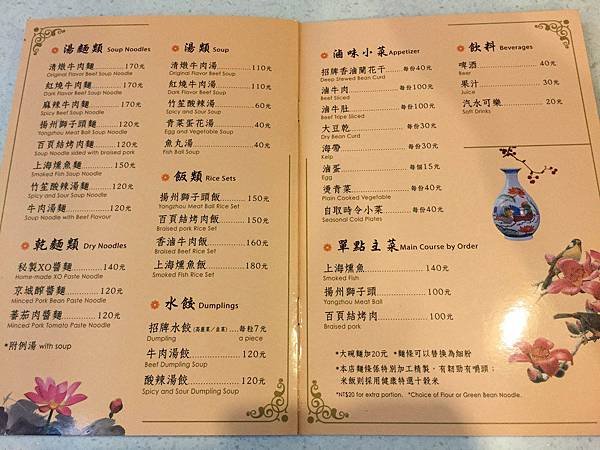 湯麵類 Soup Noodles
清燉牛肉麵……170元
Original Flavor Beef Soup Noodle
紅燒牛肉麵……170元
Dark Flavor Beef Soup Noodle
麻辣牛肉麵……170元
Spicy Beef Soup Noodle
揚州獅子頭麵……150元
Yangzhou Meat Ball Soup Noodle
百頁結烤肉麵……150元
Soup Noodle sided with braised pork
上海燻魚麵……150元
Smoked Fish Soup Noodle
竹笙酸辣湯麵……120元
Spicy and Sour Soup Noodle
牛肉湯麵……120元
Soup Noodle with Beef Flavour
乾麵類 Dry Noodles
秘製XO醬麵……140元
Home-made XO Paste Noodle
京城醡醬麵……120元
Minced Pork Bean Paste Noodle
蕃茄肉醬麵……120元
Minced Pork Tomato Paste Noodle
*附例湯 with soup
湯類 Soup
清燉牛肉湯……110元
Original Flavor Beef Soup
紅燒牛肉湯……110元
Dark Flavor Beef Soup
竹笙酸辣湯……60元
Spicy and Sour Soup
青菜蛋花湯……40元
Egg and Vegetable Soup
魚丸湯……40元
Fish Ball Soup
飯類 Rice Sets
揚州獅子頭飯……150元
Yangzhou Meat Ball Rice Set
百頁結烤肉飯……150元
Braised pork Rice Set
香滷牛肉飯……160元
Braised Beef Rice Set
上海燻魚飯……180元
Smoked Fish Rice Set
水餃 Dumplings
招牌水餃(高麗菜/韭菜)……每粒7元
Dumpling a piece
牛肉湯餃……120元
Beef Dumpling Soup
酸辣湯餃……120元
Spicy and Sour Dumpling Soup
滷味小菜 Appetizer
招牌香滷蘭花干……每份40元
Deep Stewed Bean Curd
滷牛肉……每份100元
Beef Sliced
滷牛肚……每份100元
Beef Tripe Sliced
大豆乾……每份30元
Dry Bean Curd
海帶……每份30元
Kelp
滷蛋……每個15元
Egg
燙青菜……每份40元
Plain Cooked Vegetable
自取時令小菜……每份40元
Seasonal Cold Plates
飲料 Beverages
啤酒……40元
Beer
果汁……30元
Juice
汽水可樂……20元
Soft Drinks
單點主菜 Main Course by Order
上海燻魚……140元
Smoked Fish
揚州獅子頭……100元
Yangzhou Meat Ball
百頁結烤肉……100元
Braised pork
*大碗麵加20元 *麵條可以替換為細粉
*本店麵條係特別加工精製，有韌勁有嚼頭；
米飯則採用健康特選十穀米
*NT$20 for extra portion. *Choice of Flour or Green Bean Noodle.